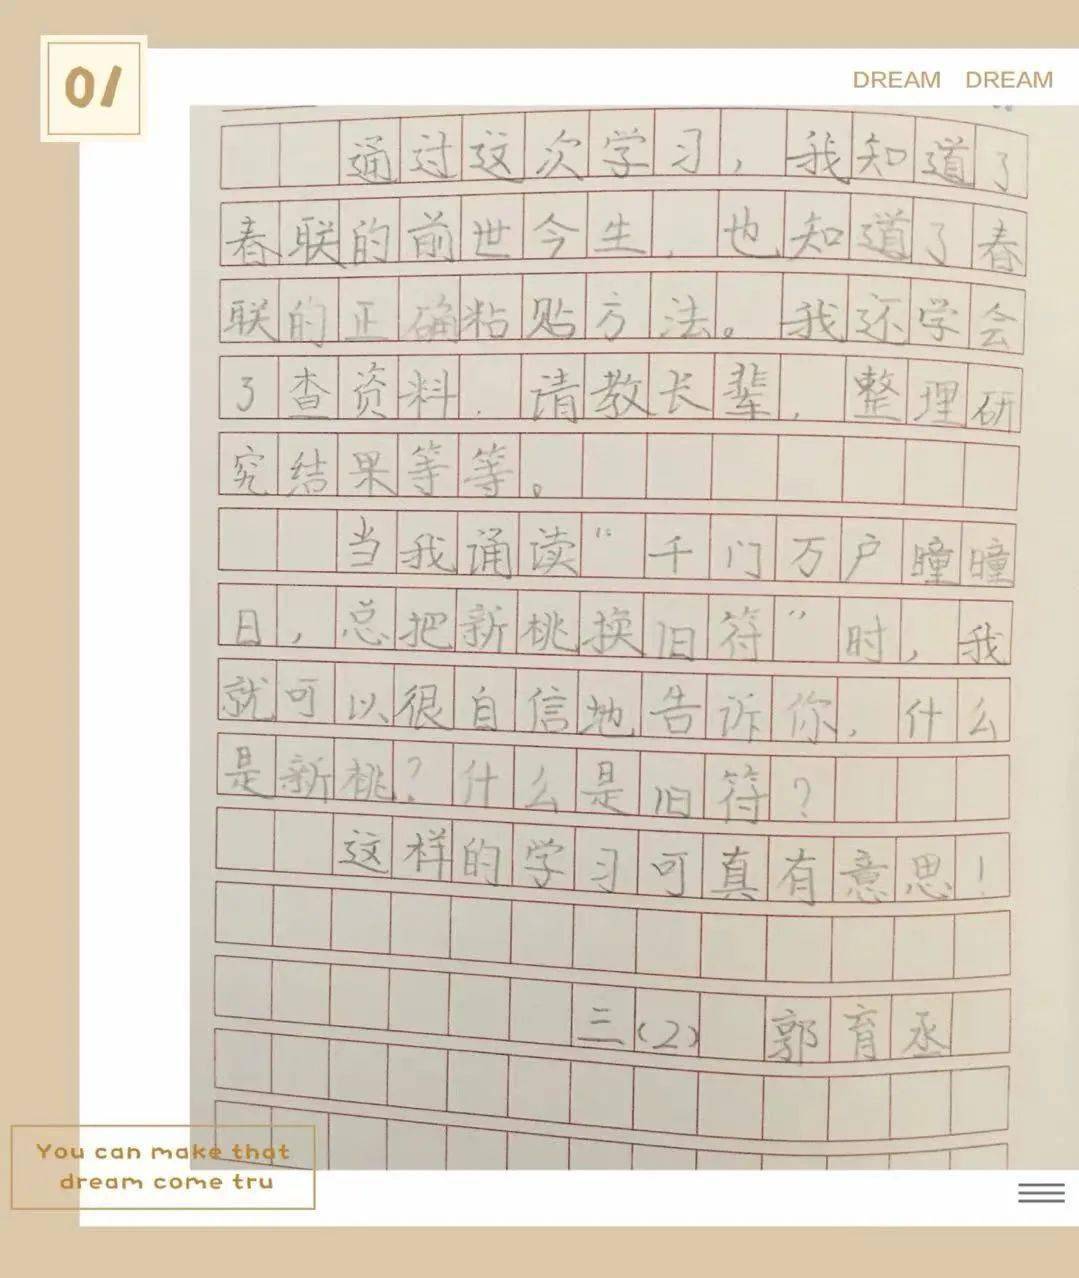 01
DREAM DREAM
通过这次学习，我知道了
春联的前世今生，也知道了春
联的正确粘贴方法。我还学会
了查资料，请教长辈，整理研
究结果等等。
当我诵读“千门万户瞳瞳
日，总把新桃换旧符”时，我
就可以很自信地告诉你，什么
是新桃？什么是旧符？
这样的学习可真有意思！
三(2) 郭育丞
You can make that
dream come tru